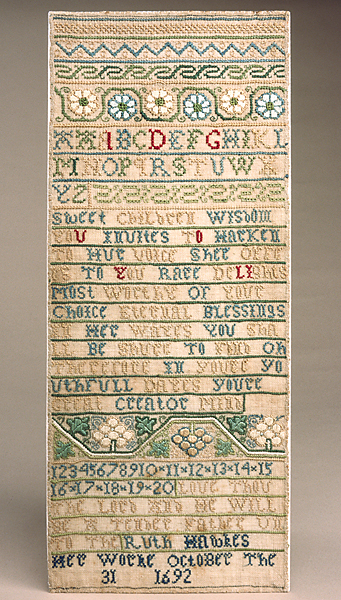 A A I B C D E F G H I K L
M N O P Q R S T U W X
Y Z
Sweet Children Wisdom
You Invites To Harken
To Hur Voice Shee Offr
es To You Rare Delights
Most Worthy Of Your
Choice Eternal Blessings
In Her Wayes You Sha
ll Be Shure To Find Oh
Therefore In Youre Yo
uthfull Dayes Youre
Creator Mind
12345678910·11·12·13·14·15
16·17·18·19·20 Love Thou
The Lord And He Will
Be A Tender Father Un
to Thee Ruth Hawkes
Her Worke October The
31 1692